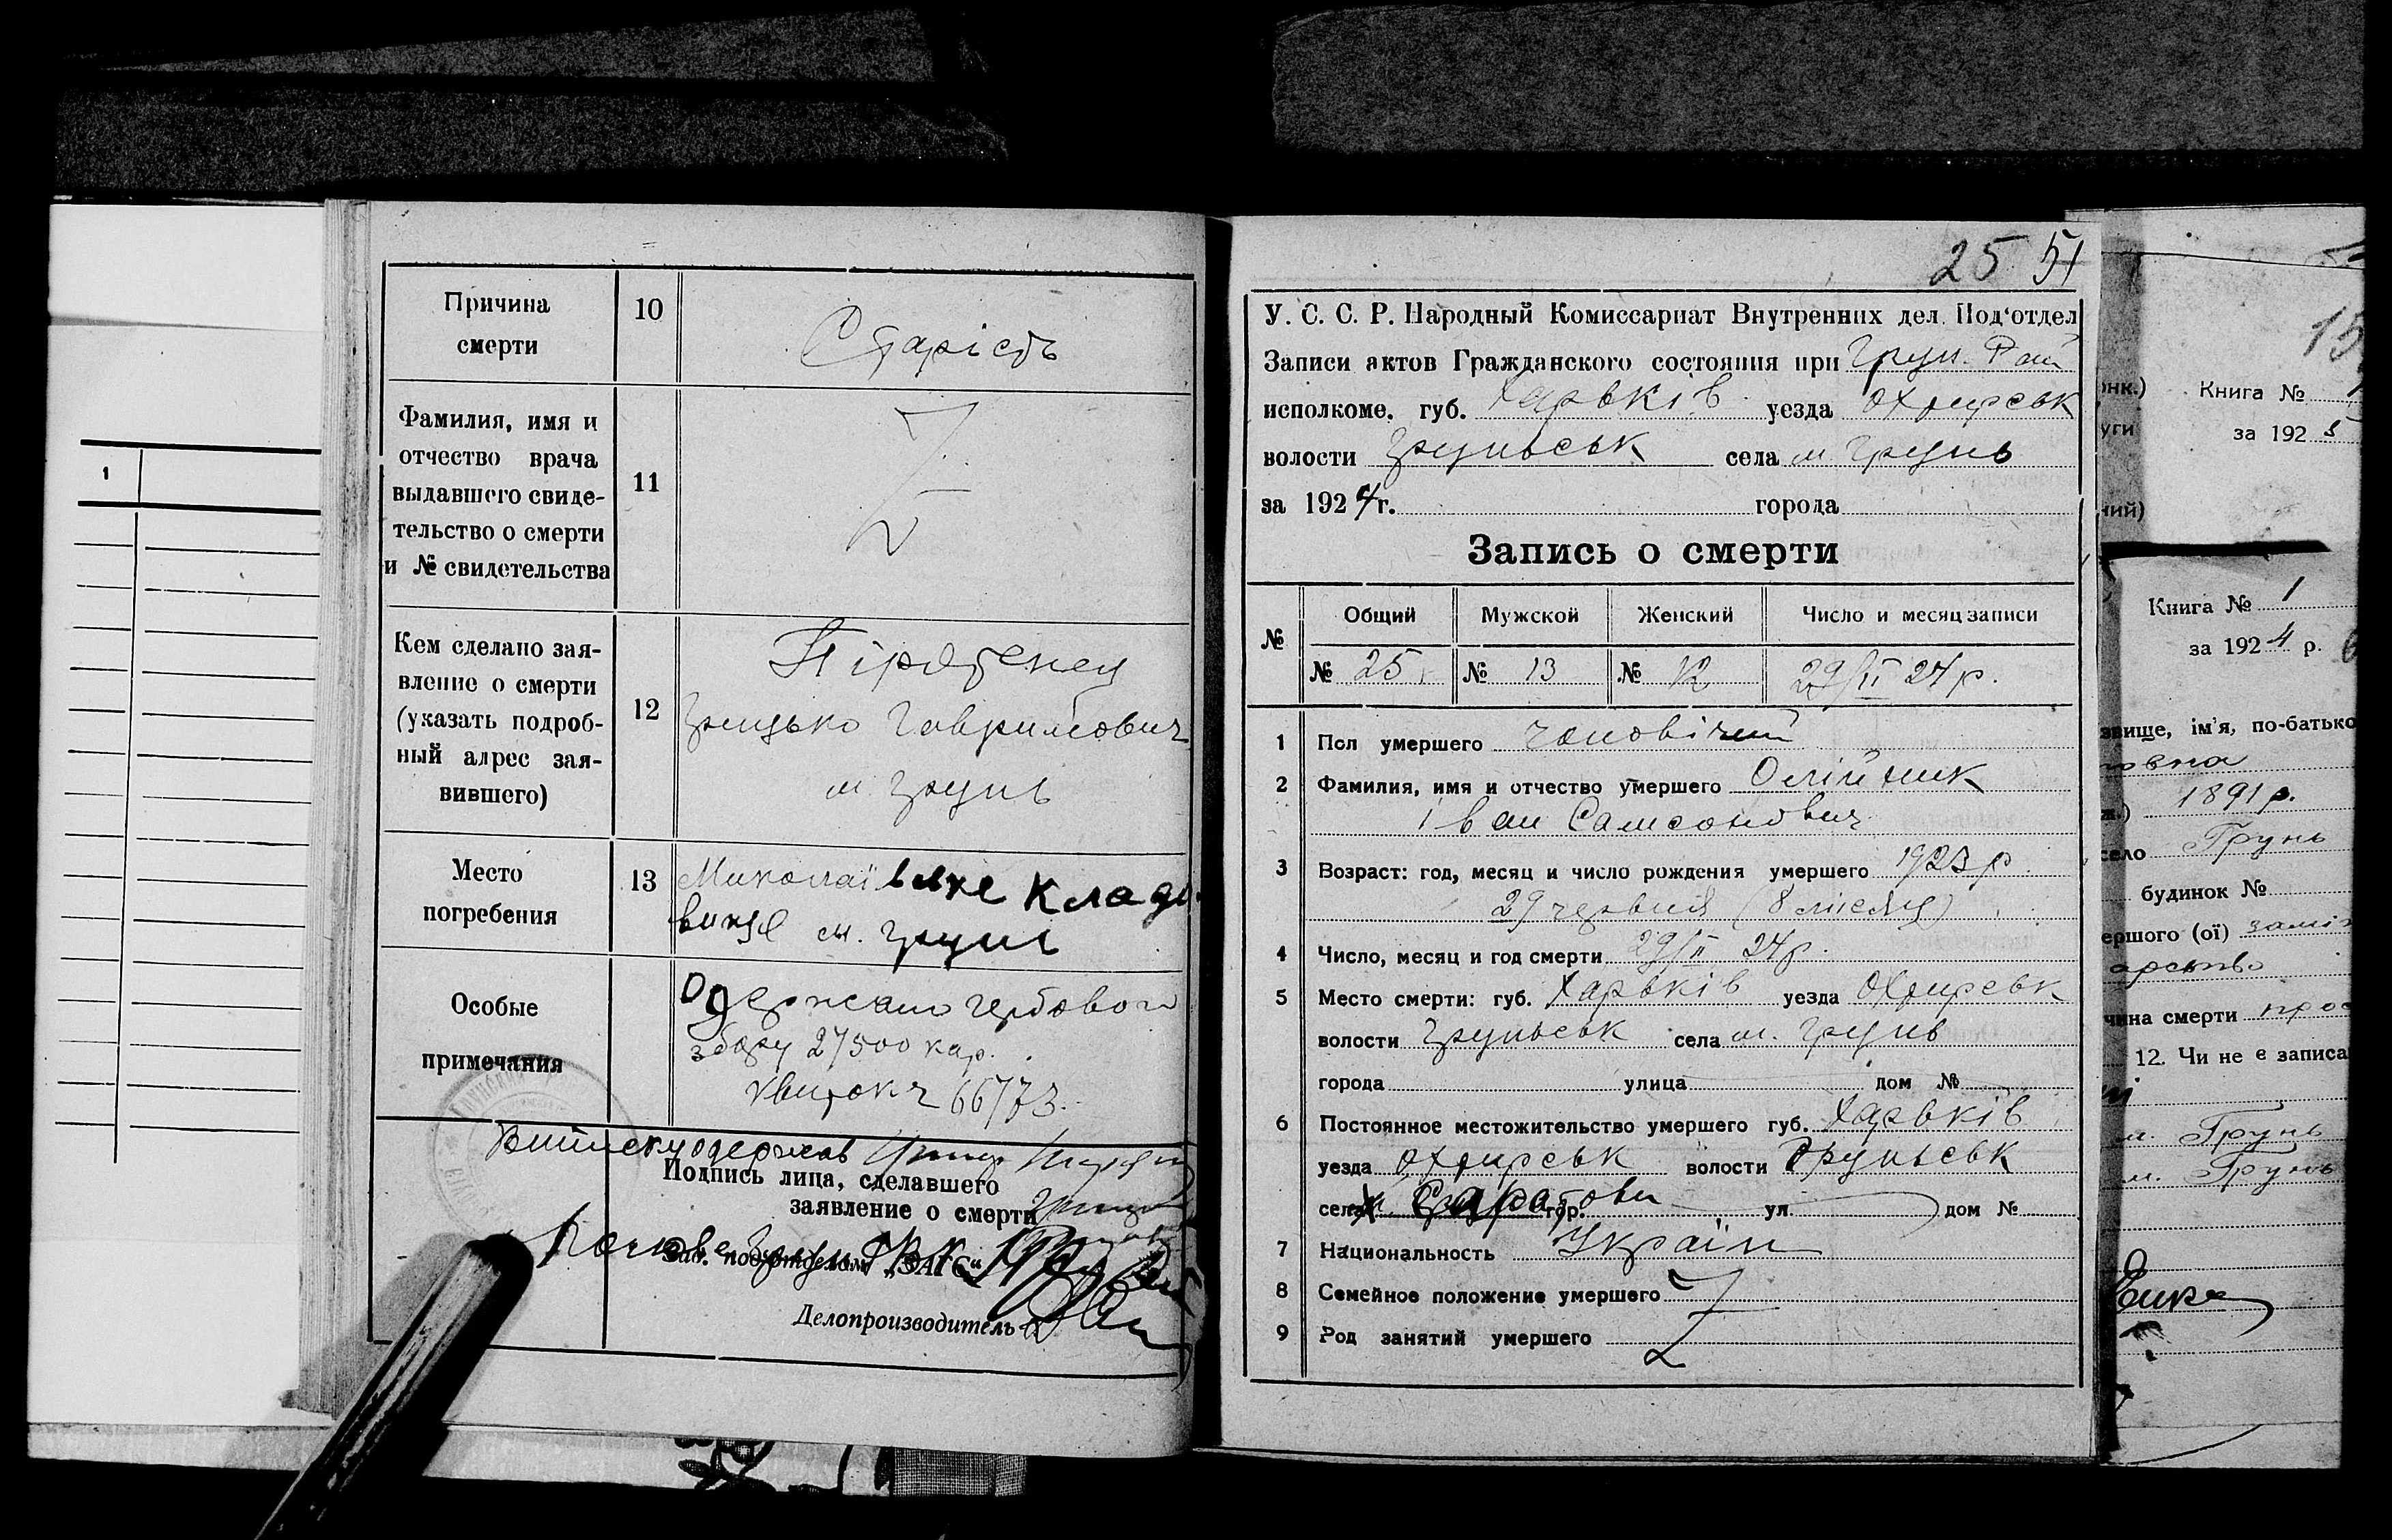 1
Причина
смерти
10
Старість
Фамилия, имя и
отчество врача
выдавшего свиде-
тельство о смерти
и № свидетельства
11
Кем сделано зая-
вление о смерти
(указать подроб-
ный адрес зая-
вившего)
12
Грицько Гаврилович
м. Грунь
Место
погребения
13
Миколаївське кладо-
вище м. Грунь
Особые
примечания
Одержано гербового
збору 27500 кар.
Квиток ч 66773.
Виписку одержав
Подпись лица, сделавшего
заявление о смерти
Зав. подотделом „ЗАГС“
Делопроизводитель
25 51
У. С. С. Р. Народный Комиссариат Внутренних дел. Под‘отдел
Записи актов Гражданского состояния при Грун. Рай
исполкоме. губ. Харьків уезда Охтирськ
волости Груньськ села м. Грунь
за 1924 г. города
Запись о смерти
№ Общий Мужской Женский Число и месяц записи
№ 25 № 13 № 12 29/II 24 р.
1 Пол умершего чоловічий
2 Фамилия, имя и отчество умершего Олійник
Іван Самсонович
3 Возраст: год, месяц и число рождения умершего 1923 р.
29 червня (8 місяц)
4 Число, месяц и год смерти 29/II 24 р.
5 Место смерти: губ. Харьків уезда Охтирськ
волости Груньськ села м. Грунь
города улица дом №
6 Постоянное местожительство умершего губ. Харьків
уезда Охтирськ волости Груньськ
села гор. ул. дом №
7 Национальность Україн
8 Семейное положение умершего
9 Род занятий умершего
Книга №
за 1925
Книга № 1
за 1924 р.
звище, ім'я, по-батько
1891 р.
село Грунь
будинок №
ершого (ої) заміж
чина смерти
12. Чи не є записа
м. Грунь
м. Грунь